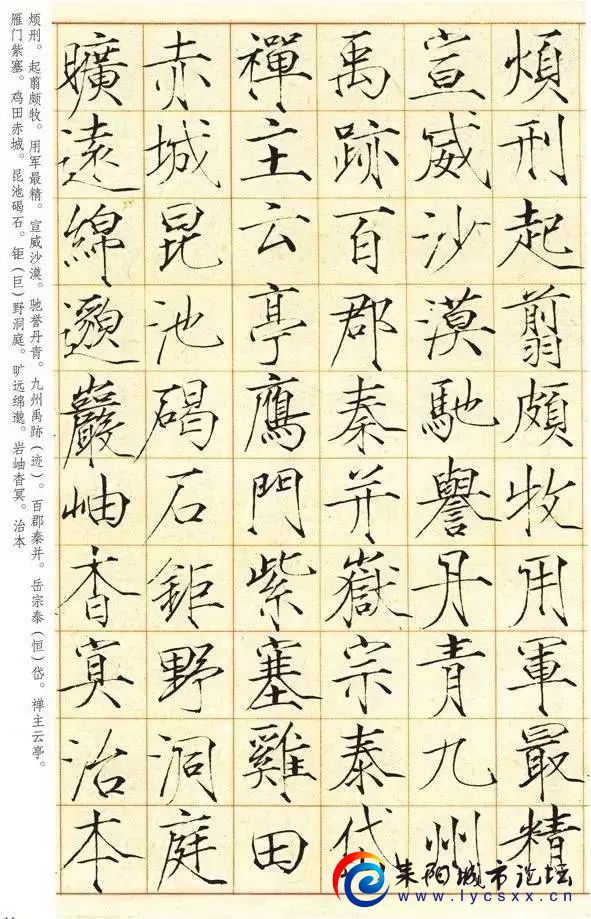 煩刑起翦頗牧用軍最精
宣威沙漠馳譽丹青九州
禹跡百郡秦并嶽宗泰岱
禪主云亭鴈門紫塞雞田
赤城昆池碣石鉅野洞庭
曠遠綿邈巖岫杳冥治本
烦刑。起翦颇牧。用军最精。宣威沙漠。驰誉丹青。九州禹跡（迹）。百郡秦并。岳宗泰（恒）岱。禅主云亭。
雁门紫塞。鸡田赤城。昆池碣石。钜（巨）野洞庭。旷远绵邈。岩岫杳冥。治本
耒阳城市论坛
www.lycsxx.cn